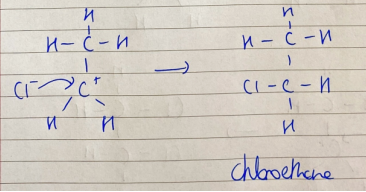 H H
H – C – H H – C – H
Cl⁻ C⁺ → Cl – C – H
H H H
chloroethane